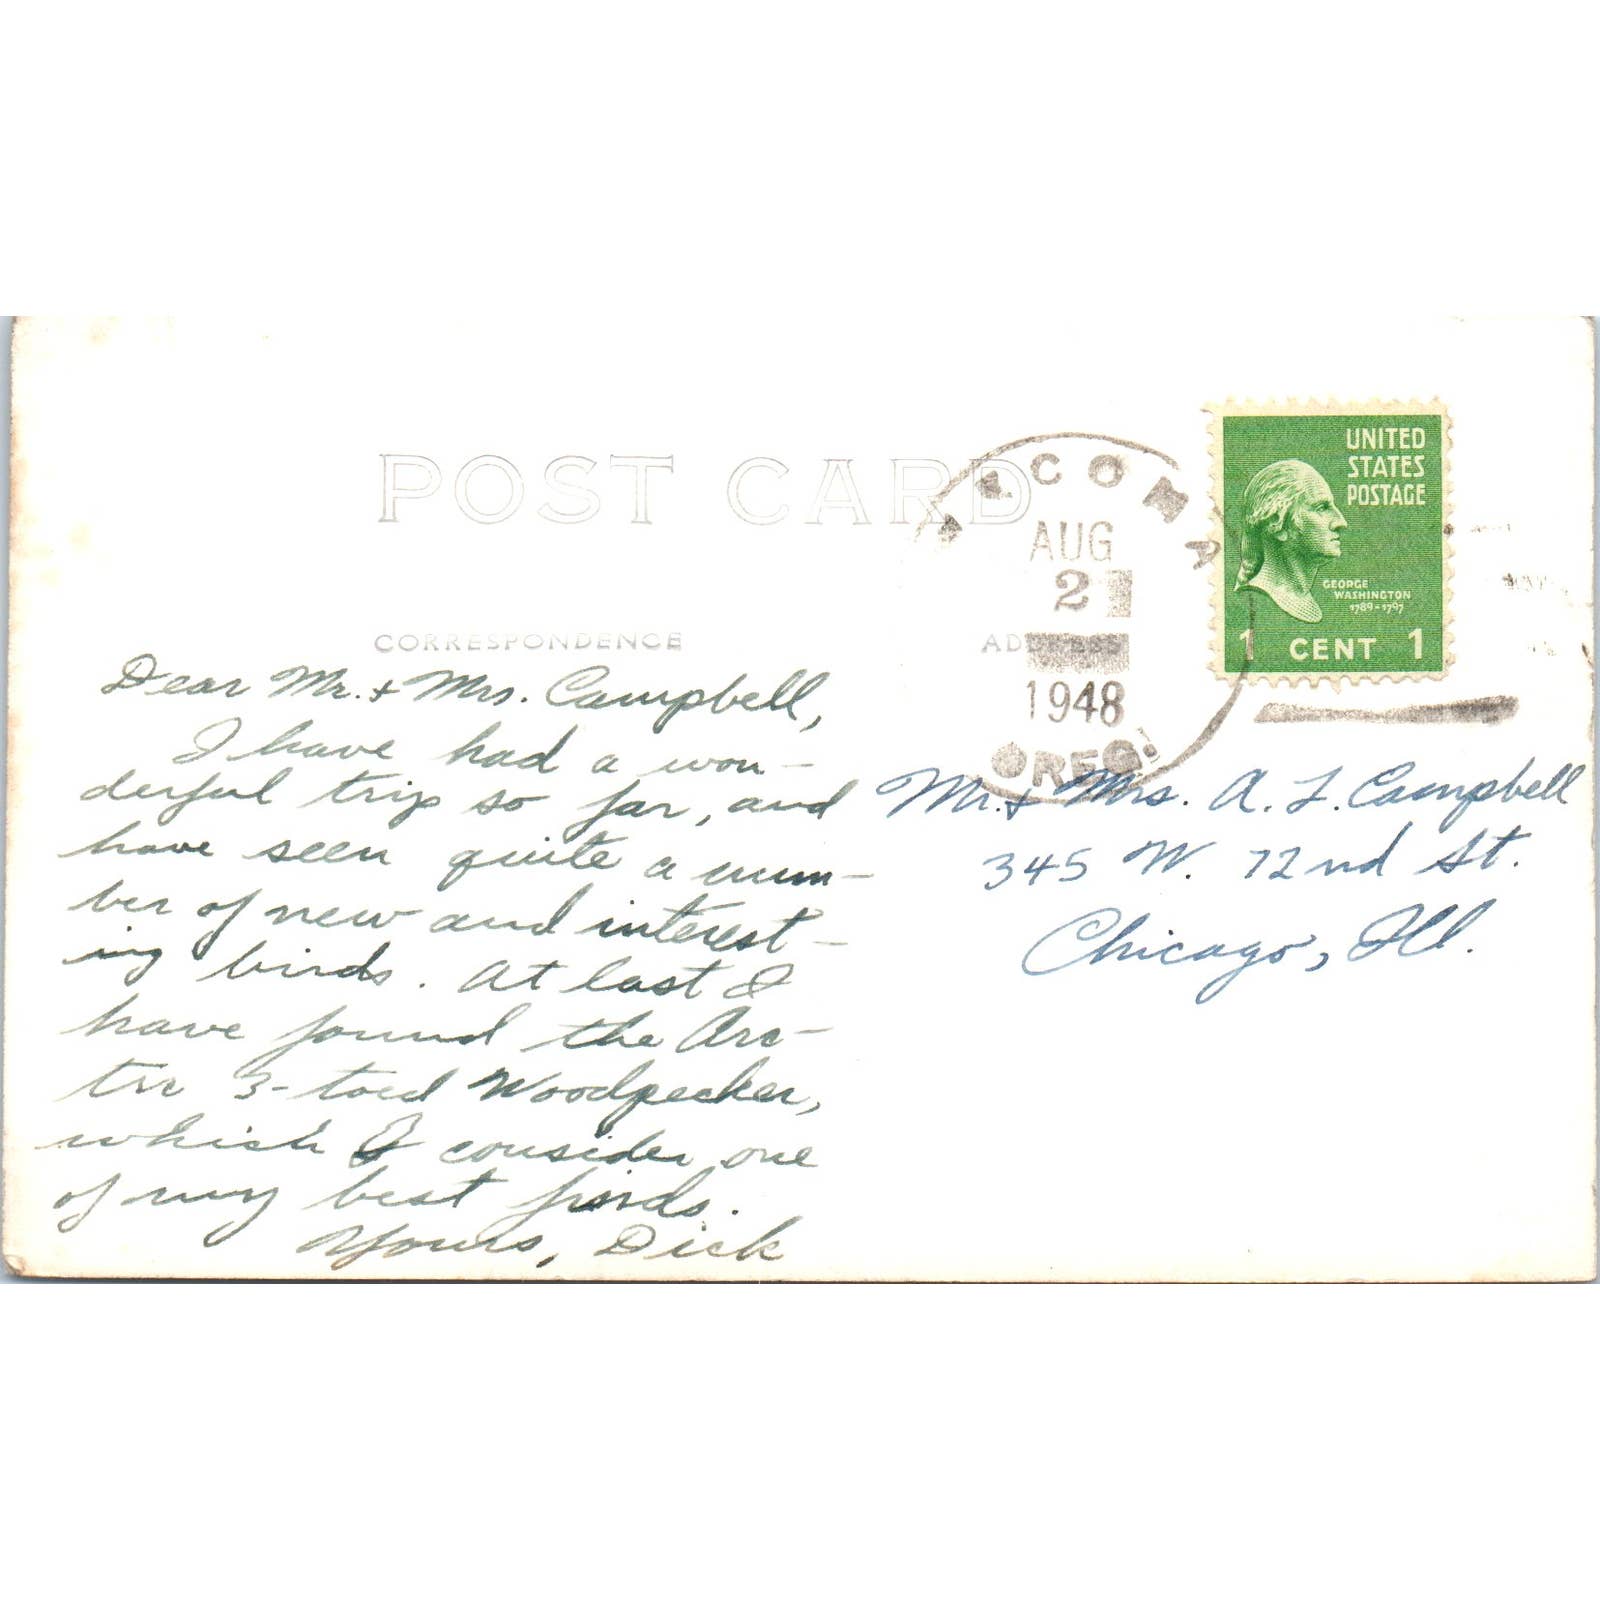 POST CARD
CORRESPONDENCE
ADDRESS
ACOMA
AUG
2
1948
OREG.
UNITED
STATES
POSTAGE
GEORGE
WASHINGTON
1789-1797
1 CENT 1
Dear Mr. & Mrs. Campbell,
I have had a won-
derful trip so far, and
have seen quite a num-
ber of new and interest-
ing birds. At last I
have found the Arc-
tic 3-toed Woodpecker,
which I consider one
of my best finds.
Yours, Dick
Mr. & Mrs. A. L. Campbell
345 W. 72nd St.
Chicago, Ill.